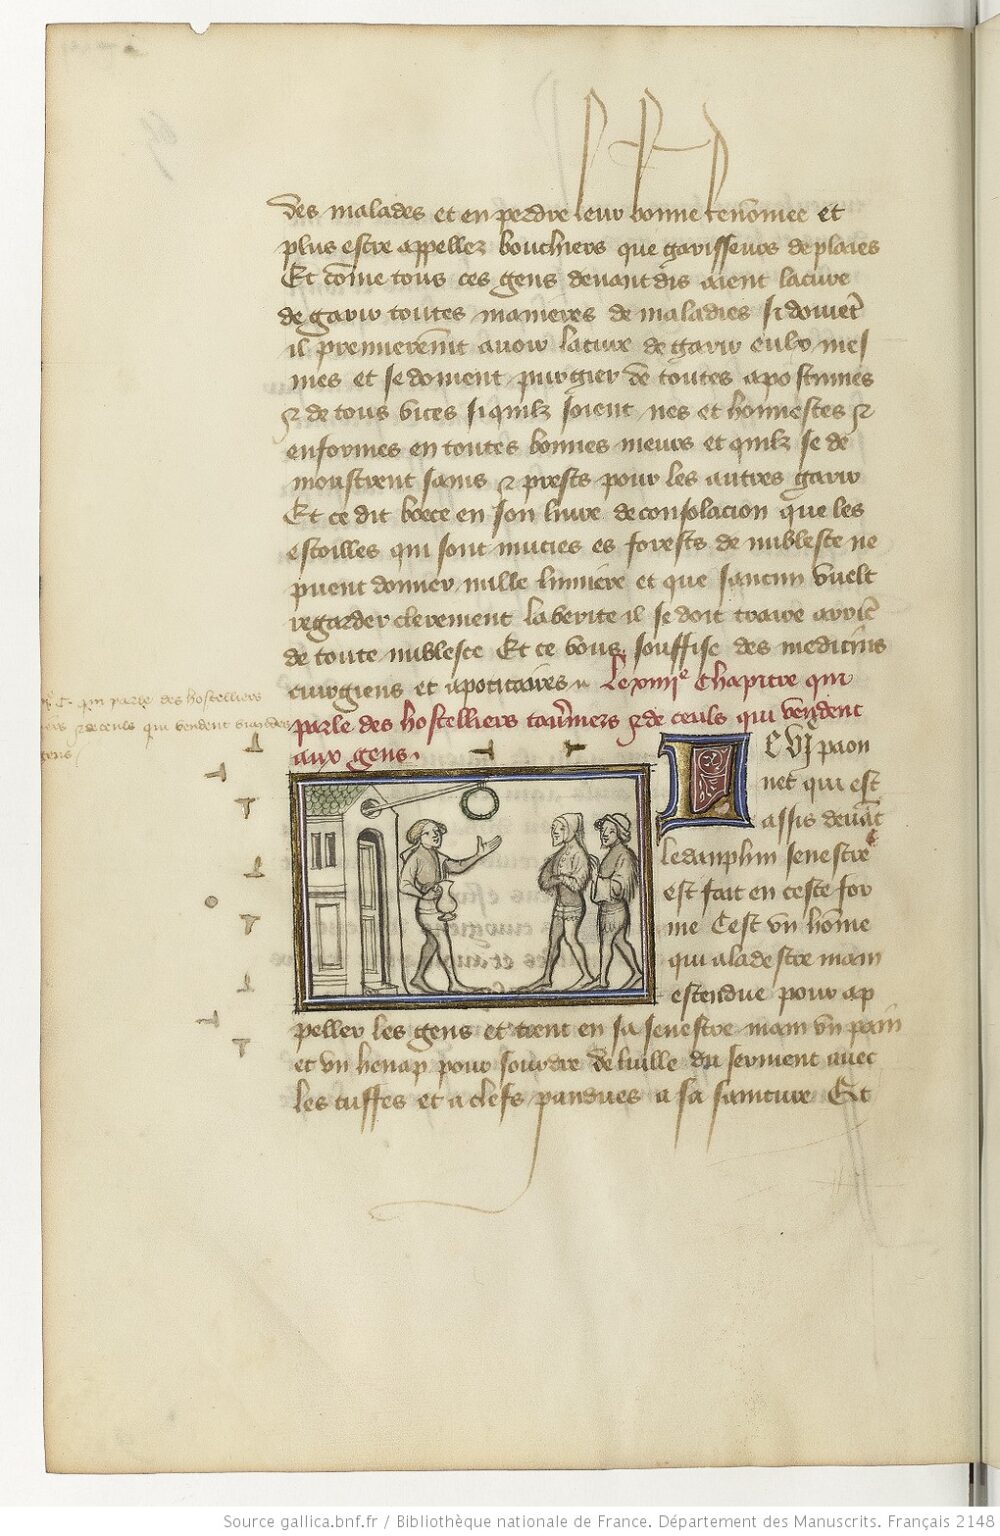 des malades et en perdre leur bonne renōmee et
plus estre appellez bouchiers que garisseurs de plaies
Et cōme tous ces gens devant dis aient la cure
de garir toutes manieres de maladies si doivēt
il premieremt avoir la cure de garir eulx mes
mes et se doivent purgier de toutes apostumes
⁊ de tous vices si quilz soient nes et honnestes ⁊
enformes en toutes bonnes meurs et quilz se de
moustrent sains ⁊ prests pour les autres garir
Et ce dit boece en son livre de consolacion que les
estoilles qui sont mucies es forests de nublesce ne
puent donner nulle lumiere et que saucun vuelt
regarder clerement la verite il se doit traire arrie
de toute nublesce Et ce vous souffise des medicins
cirurgiens et apoticaires Le xiiiie Chapitre qui
parle des hostelliers tav̄niers ⁊ de ceuls qui vendent
aux gens
C qui parle des hostelliers
⁊ de ceuls qui vendent viandes
gens
LE VI paon
net qui est
assis devāt
le dauphin senestre
est fait en ceste for
me Cest un hōme
qui a la destre main
estendue pour ap
peller les gens et tient en sa senestre main un pain
et un henap pour sourdre de luille du serment avec
les tuffes et a clefs pandues a sa sainture Et
Source gallica.bnf.fr / Bibliothèque nationale de France. Département des Manuscrits. Français 2148